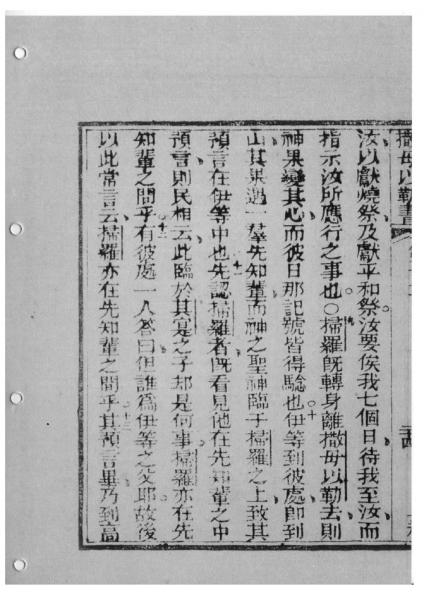 撒母以勒書
汝以獻燒祭及獻平和祭汝要俟我七個日待我至汝而
指示汝所應行之事也〇九掃羅旣轉身離撒母以勒去則
神果變其心而彼日那記號皆得驗也十伊等到彼處卽到
山其果遇一羣先知輩而神之聖神臨于掃羅之上致其
預言在伊等中也十一先認掃羅者旣看見他在先知輩之中
預言則民相云此臨於其寔之子却是何事掃羅亦在先
知輩之間乎十二有彼處一人答曰但誰爲伊等之父耶故後
以此常言云掃羅亦在先知輩之間乎十三其預言畢乃到高